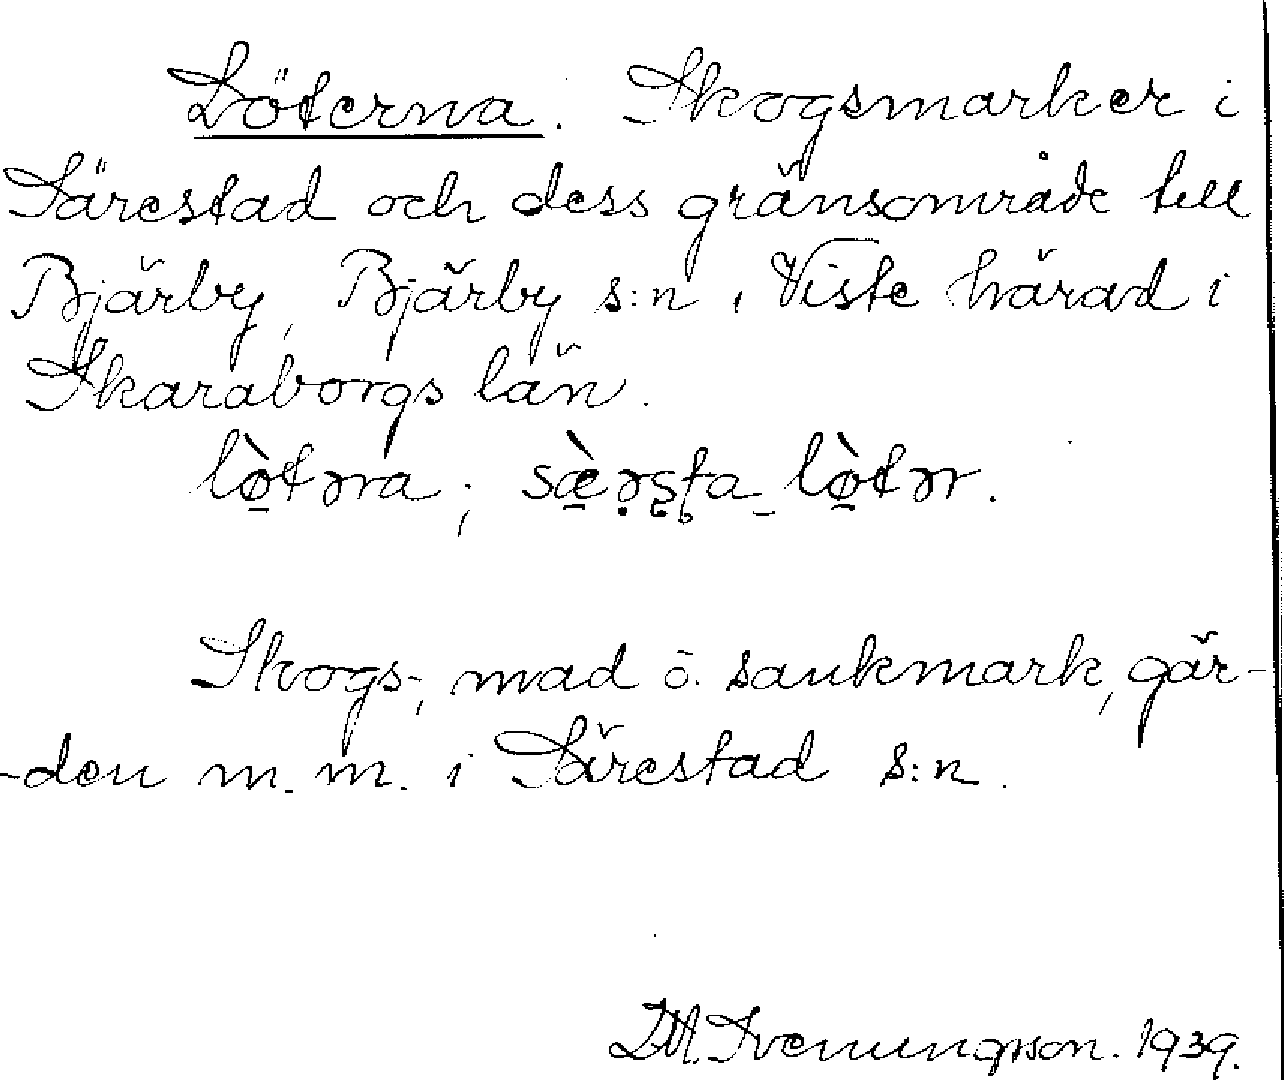 Löterna. Skogsmarker i
Särestad och dess gränsområde till
Bjärby, Bjärby s:n, Viste härad i
Skaraborgs län.
lø̠̀təra; sæ̠̀rs̩ta_lø̠̀tər.
Skogs-, mad o. sankmark, gär-
-den m.m. i Särestad s:n.
D.M. Svenningson. 1939.